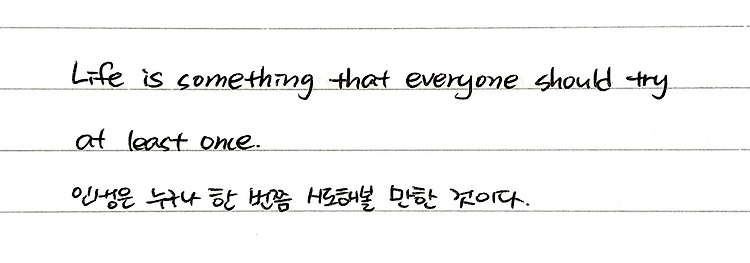 Life is something that everyone should try
at least once.
인생은 누구나 한 번쯤 시도해볼 만한 것이다.